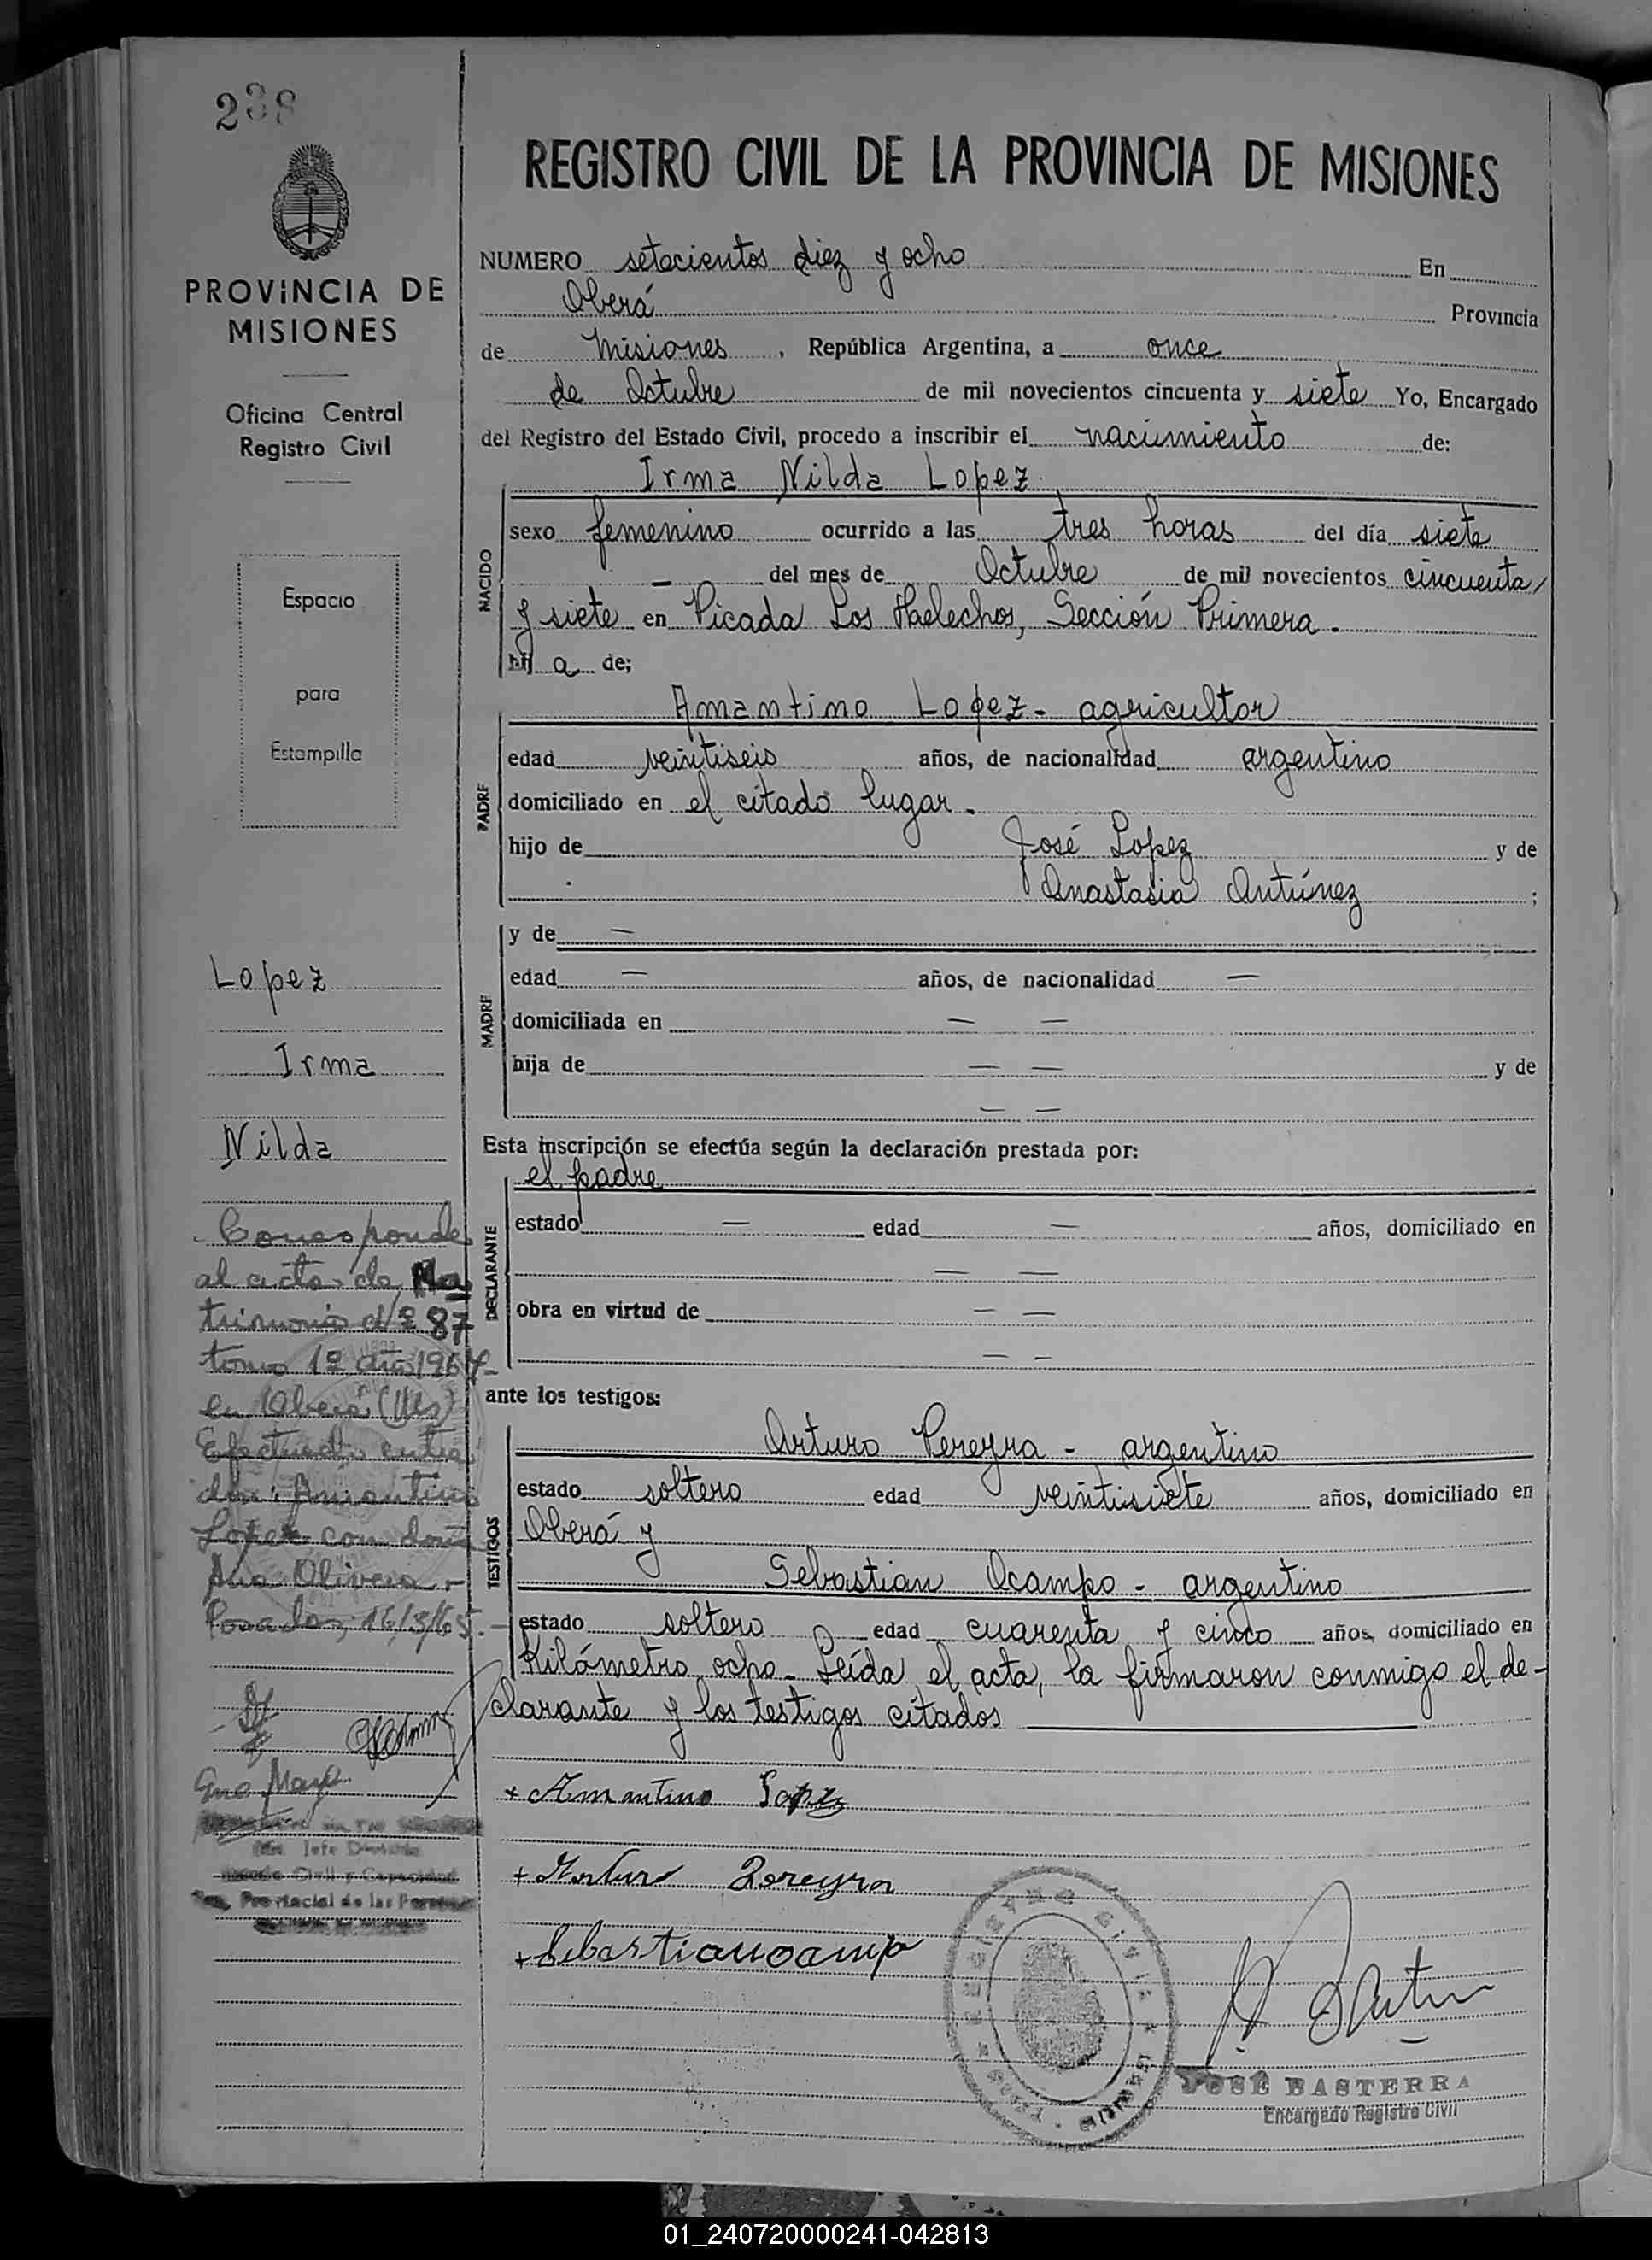 238
PROVINCIA DE
MISIONES
Oficina Central
Registro Civil
Espacio
para
Estampilla
Lopez
Irma
Nilda
Corresponde
al acta de Ma
trimonio Nº 87
tomo 1º año 1964-
en Oberá (Mes)
Efectuado entre
don: Amantino
Lopez con doña
Ana Olivera.-
Posadas, 16/3/65.-
REGISTRO CIVIL DE LA PROVINCIA DE MISIONES
NUMERO setecientos diez y ocho En
Oberá Provincia
de Misiones, República Argentina, a once
de Octubre de mil novecientos cincuenta y siete Yo, Encargado
del Registro del Estado Civil, procedo a inscribir el nacimiento de:
Irma Nilda Lopez
NACIDO
sexo femenino ocurrido a las tres horas del día siete
— del mes de Octubre de mil novecientos cincuenta
y siete en Picada Los Helechos, Sección Primera.
hij a de;
Amantino Lopez - agricultor
PADRE
edad veintiseis años, de nacionalidad argentino
domiciliado en el citado lugar.
hijo de José Lopez y de
Anastasia Antúnez ;
MADRE
y de —
edad — años, de nacionalidad —
domiciliada en — —
hija de — — y de
— —
Esta inscripción se efectúa según la declaración prestada por:
el padre
DECLARANTE
estado — edad — años, domiciliado en
— —
obra en virtud de — —
— —
ante los testigos:
Arturo Pereyra - argentino
TESTIGOS
estado soltero edad veintisiete años, domiciliado en
Oberá y
Sebastian Ocampo - argentino
estado soltero edad cuarenta y cinco años, domiciliado en
Kilómetro ocho - Leída el acta, la firmaron conmigo el de-
clarante y los testigos citados
+ Amantino Lopez
+ Arturo Pereyra
+ Sebastian ocampo
JOSÉ BASTERRA
Encargado Registro Civil
01_240720000241-042813